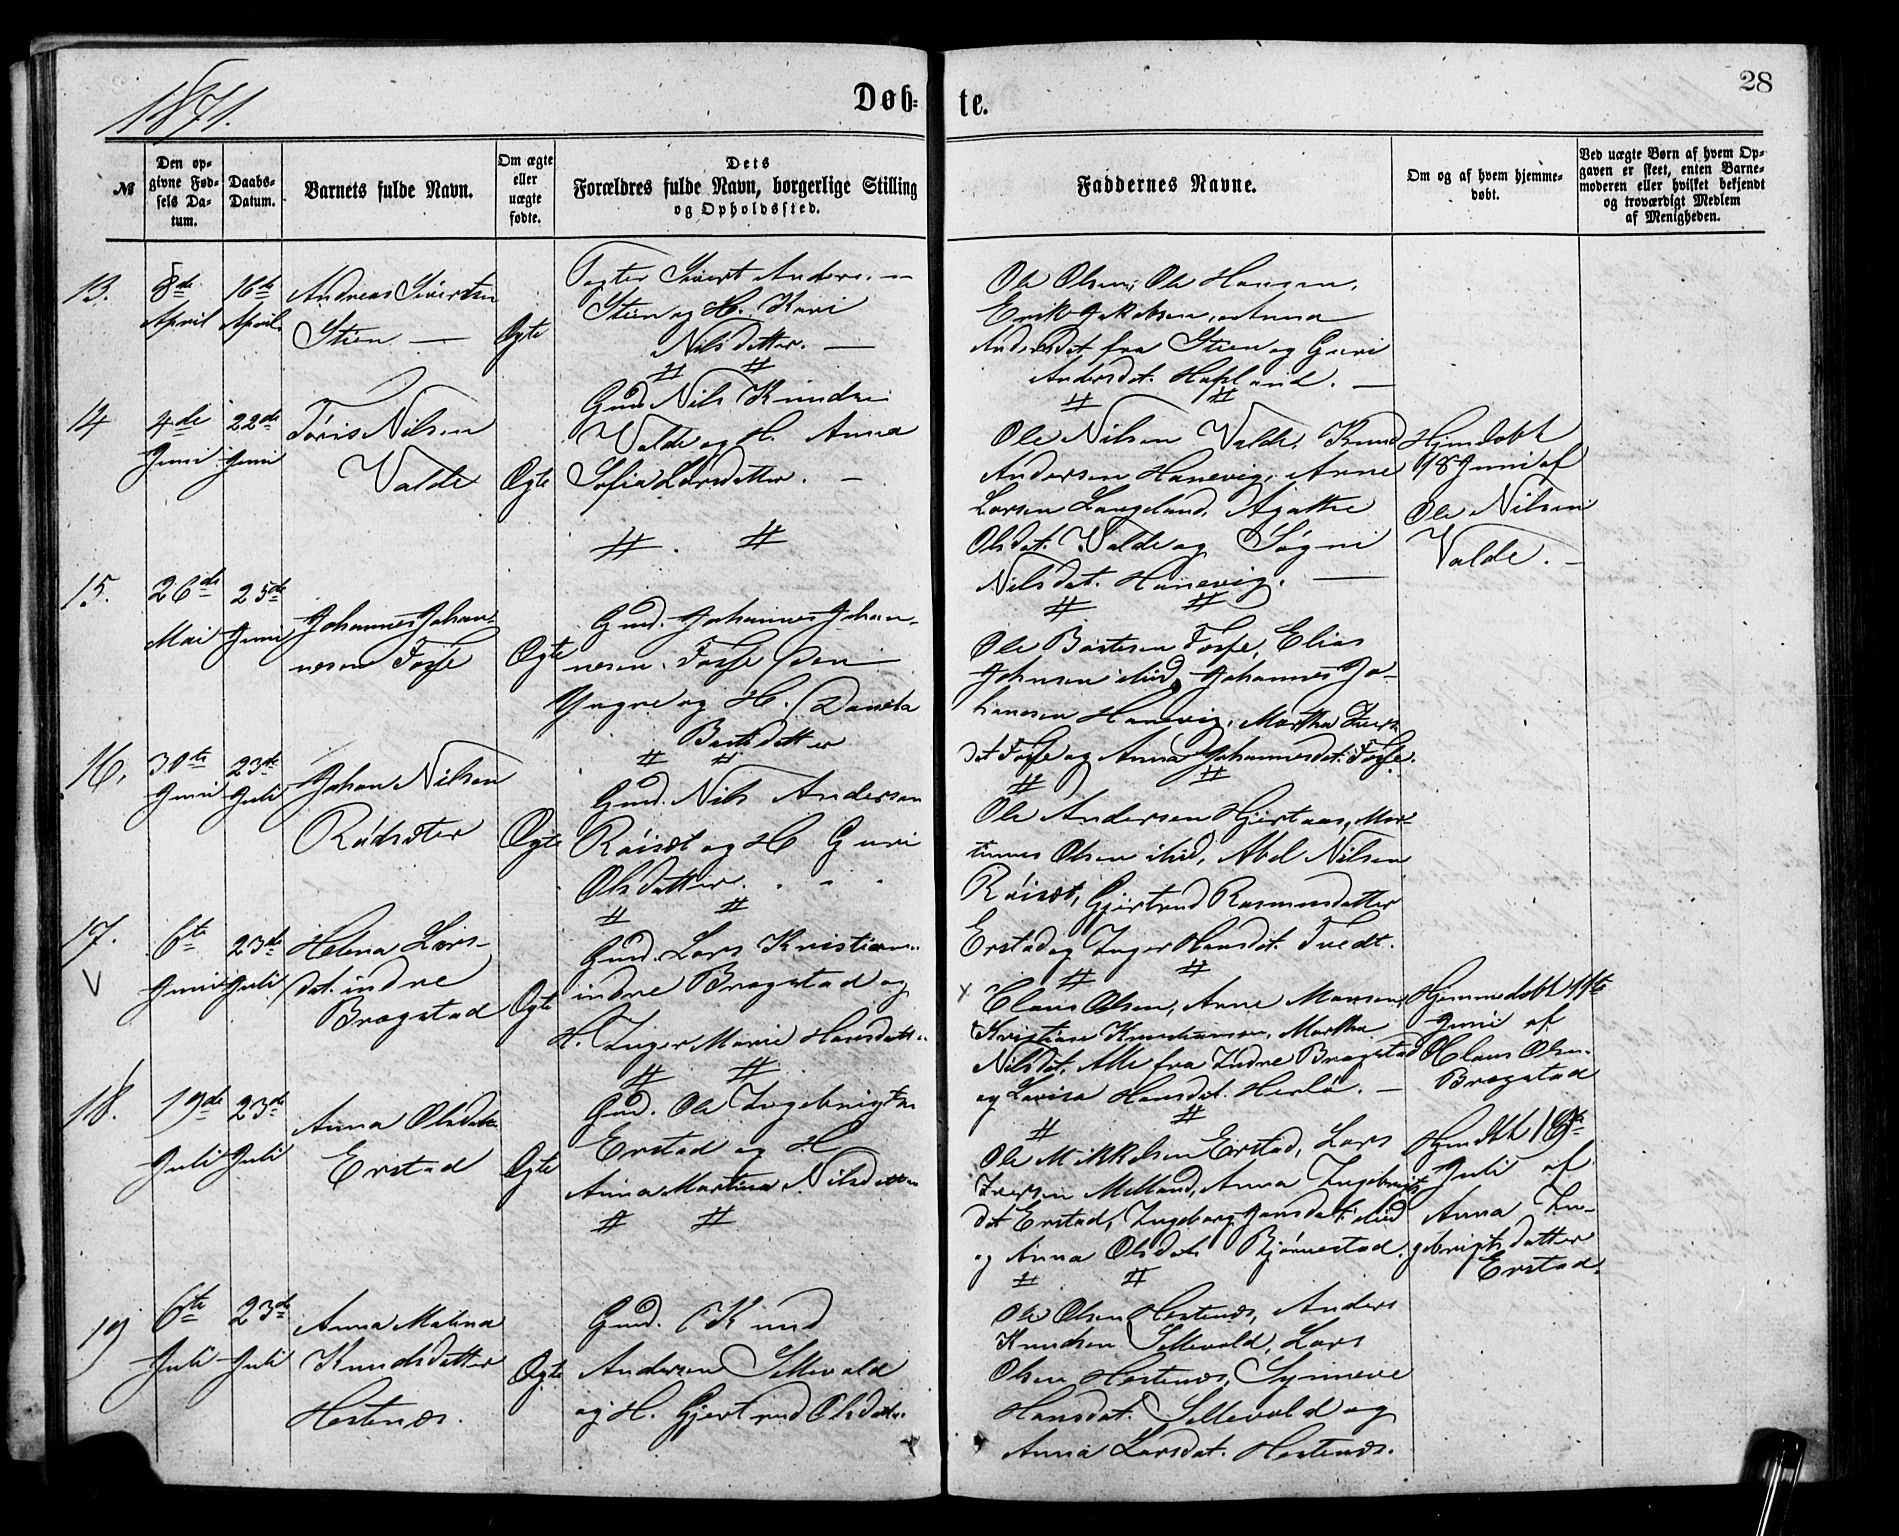 1871.
Døb-
te.
28
№
Den op-
givne Fød-
sels Da-
tum.
Daabs-
Datum.
Barnets fulde Navn.
Om ægte
eller
uægte
fødte.
Dets
Forældres fulde Navn, borgerlige Stilling
og Opholdssted.
Faddernes Navne.
Om og af hvem hjemme-
døbt.
Ved uægte Børn af hvem Op-
gaven er skeet, enten Barne-
moderen eller hvilket bekjendt
og troværdigt Medlem
af Menigheden.
13.
8de
April
16de
April.
Andreas Sivertsen
Stien —
Ægte
Sivert Anders. —
Stien og H. Kari
Nilsdatter. —
Ole Olsen, Ole Hansen,
Erik Jakobsen, Anna
Andersdat. fra Stien og Guri
Andersdat. Hapland. —
14
4de
Juni
22de
Juni
Nilsen
Valde
Ægte
Gmd Nils Knudsen
Valde og H. Anna
Sofia Larsdatter. —
Ole Nilsen Valde, Knud
Andersen Hanevig, Arne
Larsen Langeland, Agathe
Olsdat. Valde og
Nilsdat. Hanevig. —
Hjemdøbt
18 Juni af
Ole Nilsen
Valde. —
15.
26de
Mai
25de
Juni
Johannes Johan-
nesen Fosse
Ægte
Gmd. Johannes Johan-
nesen Fosse den
Yngre og H.
Ole Fosse, Elias
Johnsen ibid, Johannes Jo-
hannesen Hanevig, Martha
dat Fosse og Anna Johannesdat. Fosse.
16.
30te
Juni
23de
Juli
Johan Nilsen
Rødsæter
Ægte
Gmd. Nils Andersen
Røiset og H Guri
Olsdatter.
Ole Andersen Hjertaas, Mar-
tinus Olsen ibid, Abel Nilsen
Røiset, Gjertrud Rasmusdatter
Erstad og Inger Hansdat. Tvedt.
17.
V
6te
Juni
23de
Juli
Helena Lars-
dat. indre
Bragstad
Ægte
Gmd. Lars Kristian..
indre Bragstad og
H. Inger Marie Hansdatt..
x
Claus Olsen, Arne Monsen,
Martha
Nilsdat. Alle fra Indre Bragstad
og Lovisa Hansdat. Herlø. —
Hjemmedøbt 11te
Juni af
Claus Olsen
Bragstad
18.
19de
Juli
23de
Juli
Anna Olsdatter
Erstad
Ægte
Gmd. Ole Ingebrigtsen
Erstad og H
Anna Martina Nilsdatter
Ole Mikkelsen Erstad, Lars
Iversen Melland, Anna Ingebrigts
dat Erstad, Ingeborg Jonsdat. ibid
og Anna Olsdat. Bjørnestad.
Hjmdbt 19de
Juli af
Anna In-
gebrigtsdatter
Erstad.
19
6te
Juli
23de
Juli
Anna Malina
Knudsdatter
Hestenæs.
Ægte
Gmd. Knud
Andersen Sellevold
og H. Gjertrud Olsdatter
Ole Olsen Hestenæs, Anders
Knudsen Sellevold, Lars
Olsen Hestenæs, Synneve
Hansdat. Sellevold og
Anna Larsdat. Hestenæs.